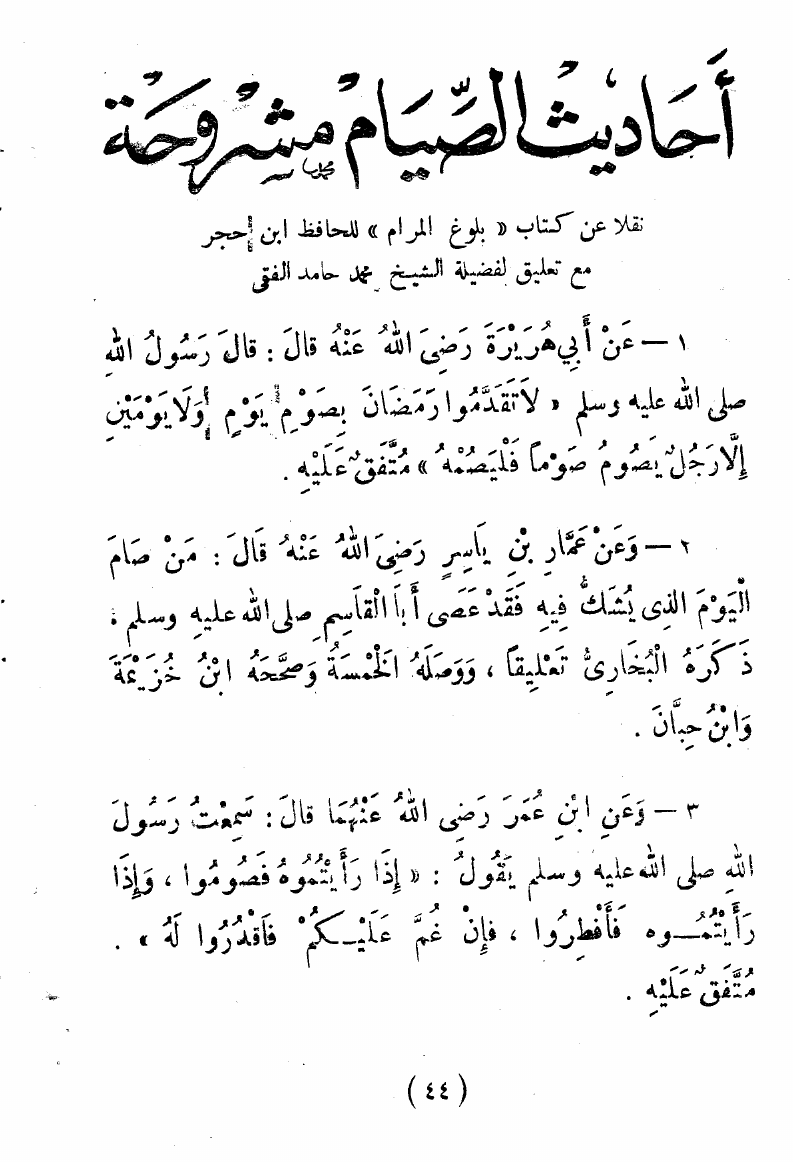 أَحَاديثُ الصِّيَام مَشْروحَة
نقلا عن كتاب « بلوغ المرام » للحافظ ابن حجر
مع تعليق لفضيلة الشيخ محمد حامد الفقى
١ — عَنْ أَبِي هُرَيْرَةَ رَضِىَ اللهُ عَنْهُ قالَ : قالَ رَسُولُ اللهِ
صلى الله عليه وسلم « لاَ تَقَدَّمُوا رَمَضَانَ بِصَوْمِ يَوْمٍ وَلَا يَوْمَيْنِ
إِلَّا رَجُلٌ يَصُومُ صَوْماً فَلْيَصُمْهُ » مُتَّفَقٌ عَلَيْهِ .
٢ — وَعَنْ عَمَّارِ بْنِ يَاسِرٍ رَضِىَ اللهُ عَنْهُ قَالَ : مَنْ صَامَ
الْيَوْمَ الذِى يُشَكُّ فِيهِ فَقَدْ عَصَى أَبَا الْقَاسِمِ صلى الله عليه وسلم :
ذَكَرَهُ الْبُخَارِىُّ تَعْلِيقاً ، وَوَصَلَهُ الْخَمْسَةُ وَصَحَّحَهُ ابْنُ خُزَيْمَةَ
وَابْنُ حِبَّانَ .
٣ — وَعَنِ ابْنِ عُمَرَ رَضِى اللهُ عَنْهُمَا قالَ : سَمِعْتُ رَسُولَ
اللهِ صلى الله عليه وسلم يَقُولُ : « إِذَا رَأَيْتُمُوهُ فَصُومُوا ، وَإِذَا
رَأَيْتُمُــوه فَأَفْطِرُوا ، فإِنْ غُمَّ عَلَيْــكُمْ فاَقْدُرُوا لَهُ » .
مُتَّفَقٌ عَلَيْهِ .
( ٤٤ )